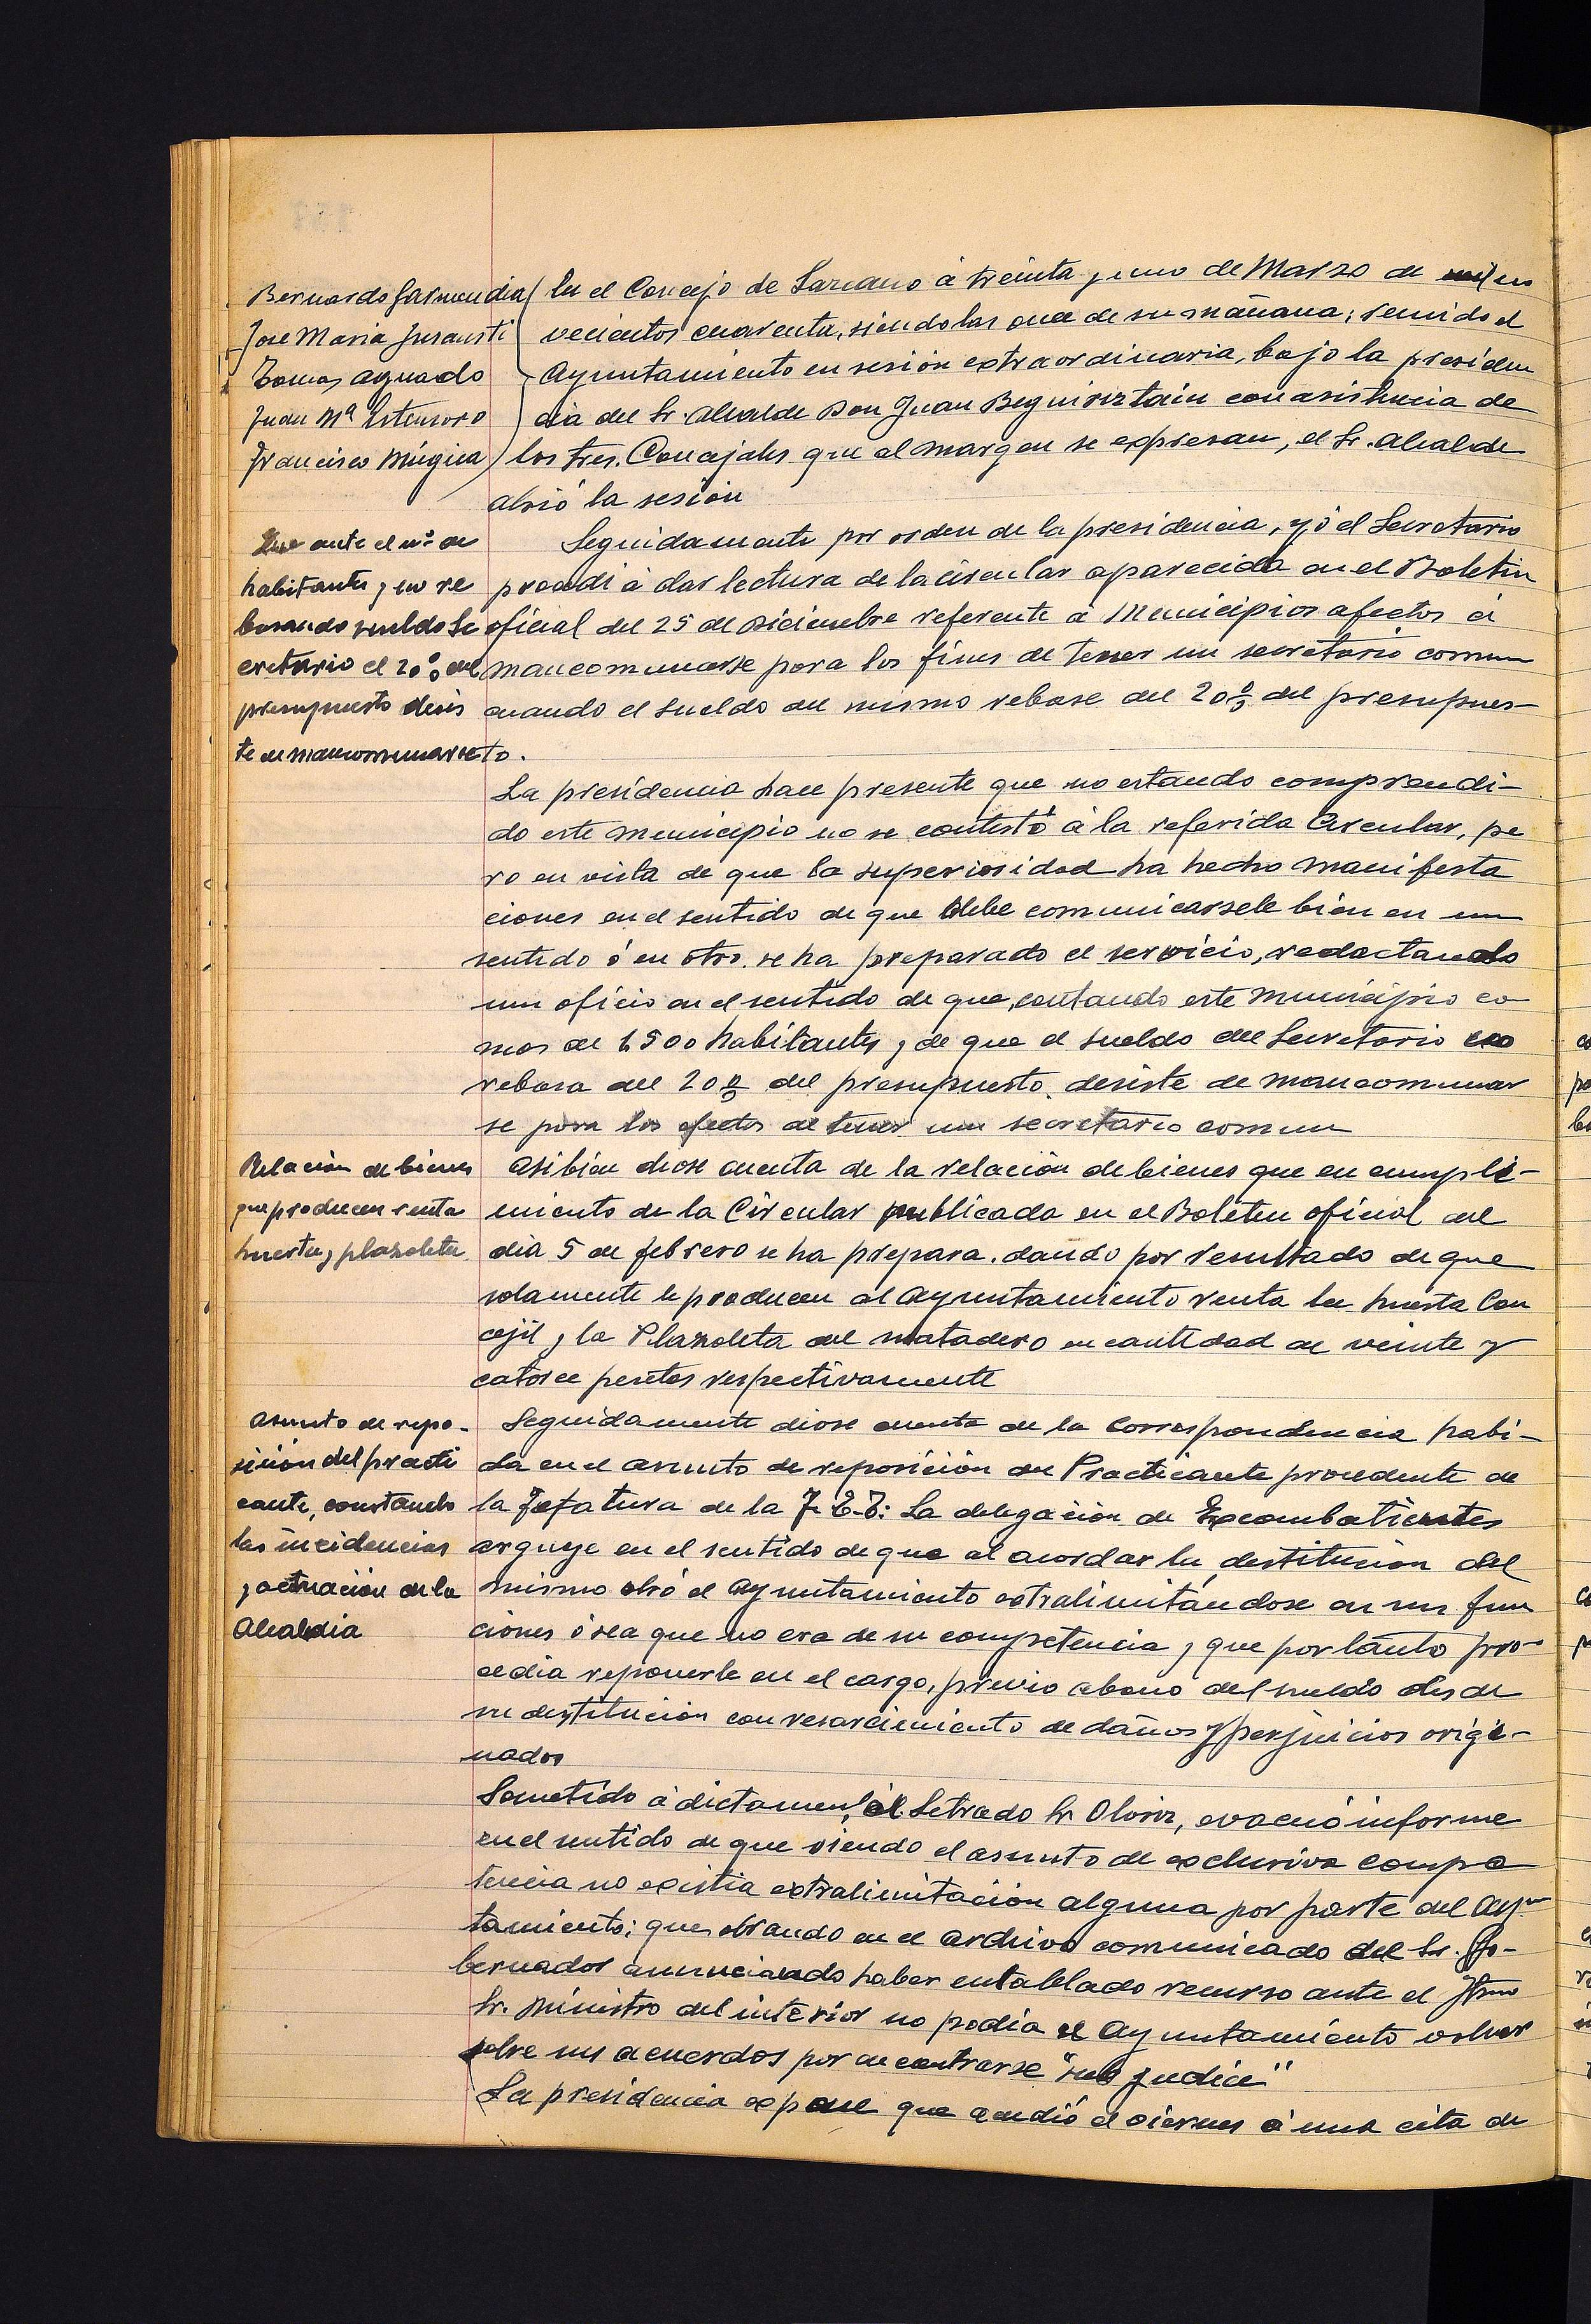 Bernardo Garmendia
Jose Maria Jusausti
Tomas Aguado
Juan Mª Estensoro
Francisco Múgica
En el Concejo de Lazcano á treinta y uno de Marzo de mil no
vecientos cuarenta, siendo las once de su mañana; reunido el
Ayuntamiento en sesión extraordinaria, bajo la presiden
cia del Sr. Alcalde Don Juan Beguiristain con asistencia de
los tres. Concejales que al margen se expresan, el Sr. Alcalde
abrió la sesión
Que ante el nº de
habitantes y no re
basando sueldo Se
cretario el 20% del
presupuesto desis
te de mancomunarse
Seguidamente por orden de la presidencia, yó el Secretario
procedí á dar lectura de la circular aparecida en el Boletin
oficial del 25 de Diciembre referente á Municipios afectos á
mancomunarse para los fines de tener un secretario comun
cuando el sueldo del mismo rebase del 20% del presupues-
to.
La presidencia hace presente que no estando comprendi-
do este municipio no se contestó á la referida Circular, pe
ro en vista de que la superiosidad ha hecho manifesta
ciones en el sentido de que debe comunicarsele bien en un
sentido ó en otro. se ha preparado el servicio, redactando
un oficio en el sentido de que, contando este Municipio co
mos de 1.500 habitantes y de que el sueldo del Secretario no
rebasa del 20% del presupuesto. desiste de mancomunar
se para los efectos de tener un secretario comun
Relación de bienes
que producen renta
huerta y plazoleta
Asibien diose cuenta de la relación de bienes que en cumpli-
miento de la Circular publicada en el Boletin oficial del
dia 5 de febrero se ha prepara. dando por resultado de que
solamente le producen al Ayuntamiento renta la huerta Con
cejil y la Plazoleta del matadero en cantidad de veinte y
catorce pesetas respectivamente
Asunto de repo-
sición del practi
cante, constando
las incidencias
y actuación de la
Alcaldia
Seguidamente diose cuenta de la correspondencia habi-
da en el asunto de reposición del Practicante procedente de
la Jefatura de la F. E. T: La delegación de Excombatientes
arguye en el sentido de que al acordar la destitución del
mismo obró el Ayuntamiento extralimitándose en sus fun
ciones ó sea que no era de su competencia y que por tanto pro-
cedia reponerle en el cargo, previo abono del sueldo desde
su destitución con resarcimiento de daños y perjuicios origi-
nados
Sometido á dictamen, al Letrado Sr. Oloriz, evacuó informe
en el sentido de que siendo el asunto de exclusiva compe
tencia no existia extralimitación alguna por parte del Ayun
tamiento; que obrando en el archivo comunicado del Sr. Go-
bernador anunciando haber entablado recurso ante el Iltmo
Sr. Ministro del interior no podia el Ayuntamiento volver
sobre sus acuerdos por encontrarse "sub judice"
La presidencia expone que acudió el viernes á una cita de